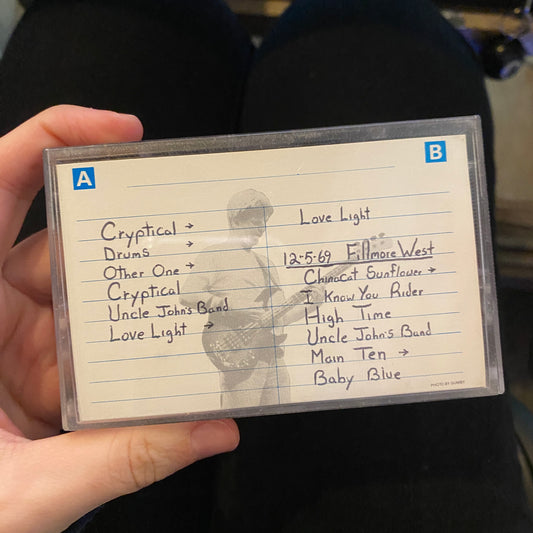 A
Cryptical →
Drums →
Other One →
Cryptical
Uncle John's Band
Love Light →
B
Love Light
12-5-69 Fillmore West
ChinaCat Sunflower →
I Know You Rider
High Time
Uncle John's Band
Main Ten →
Baby Blue
PHOTO BY